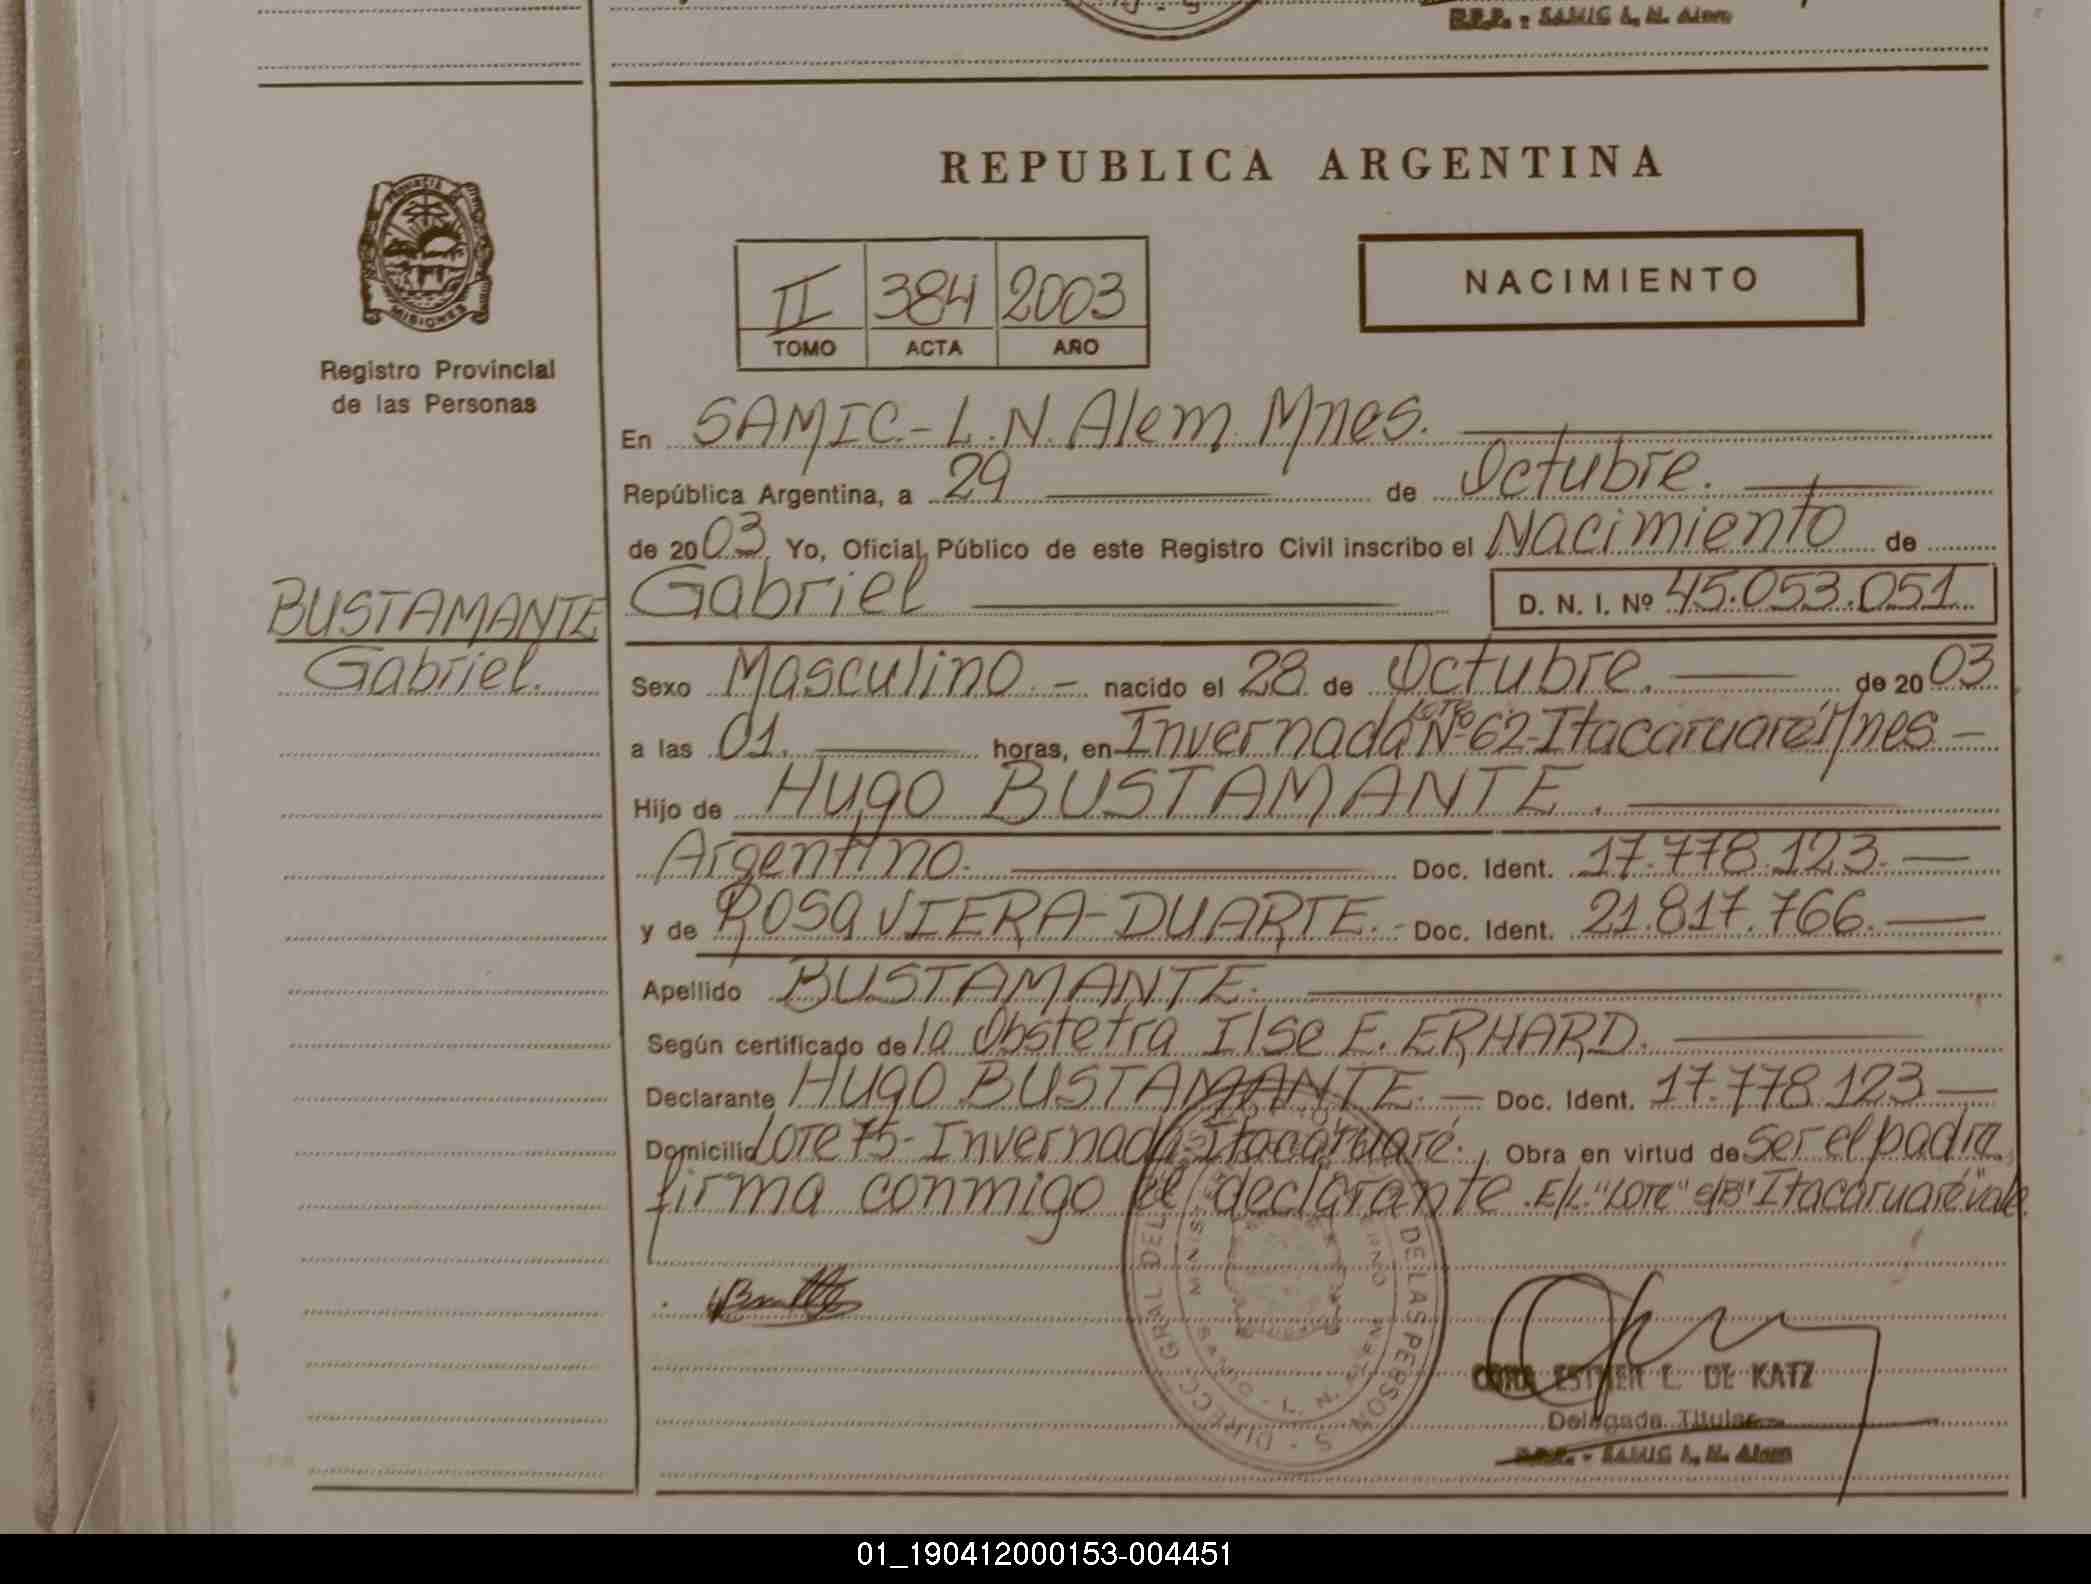 SAMIC L. N. Alem
REPUBLICA ARGENTINA
PROVINCIA
MISIONES
Registro Provincial
de las Personas
II 384 2003
TOMO ACTA AÑO
NACIMIENTO
En SAMIC.- L.N. Alem Mnes.
República Argentina, a 29 de Octubre.
de 2003, Yo, Oficial Público de este Registro Civil inscribo el Nacimiento de
BUSTAMANTE
Gabriel.
Gabriel D. N. I. Nº 45.053.051
Sexo Masculino - nacido el 28 de Octubre. de 2003
a las 01. horas, en Invernada Lote Nº 62-Itacaruaré Mnes -
Hijo de Hugo BUSTAMANTE.
Argentino. Doc. Ident. 17.778.123.
y de Rosa VIERA-DUARTE.- Doc. Ident. 21.817.766.
Apellido BUSTAMANTE.
Según certificado de la Obstetra Ilse E. ERHARD.
Declarante Hugo BUSTAMANTE. - Doc. Ident. 17.778.123
Domicilio Lote 75- Invernada-Itacaruaré. , Obra en virtud de ser el padre
firma conmigo el declarante. E/L. "Lote" s/B" Itacaruaré" vale.
DIRECC. GRAL DEL DE LAS PERSONAS
L. N. ALEM
ESTHER L. DE KATZ
Delegada Titular
SAMIC L. N. Alem
01_190412000153-004451